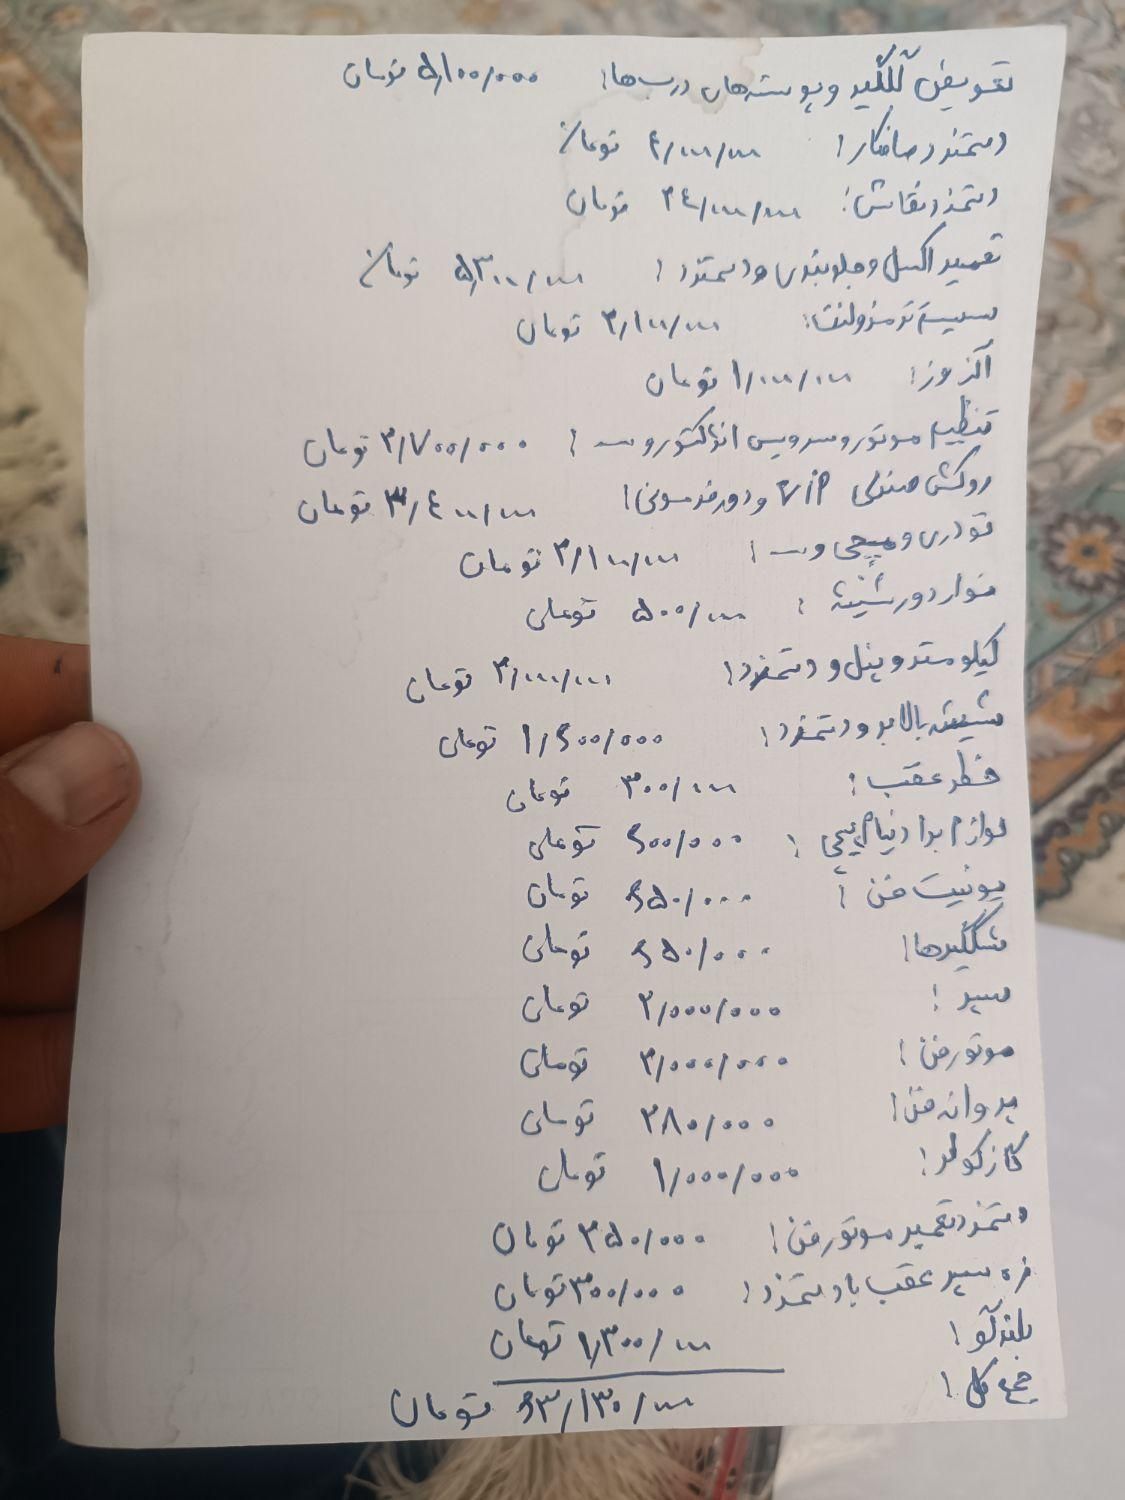 تعویض گلگیر و پوسته‌های درب‌ها: ۵/۱۰۰/۰۰۰ تومان
دستمزد صافکار: ۴/۰۰۰/۰۰۰ تومان
دستمزد نقاش: ۲۴/۰۰۰/۰۰۰ تومان
تعمیر اکسل و جلوبندی و دستمزد: ۵/۳۰۰/۰۰۰ تومان
سیستم ترمز و لنت: ۲/۱۰۰/۰۰۰ تومان
اگزوز: ۱/۰۰۰/۰۰۰ تومان
تنظیم موتور و سرویس انژکتور و ...: ۲/۷۰۰/۰۰۰ تومان
روکش صندلی VIP و دور فرمونی: ۳/۴۰۰/۰۰۰ تومان
تودری و پیچی و ...: ۲/۱۰۰/۰۰۰ تومان
نوار دور شیشه: ۵۰۰/۰۰۰ تومان
کیلومتر و پنل و دستمزد: ۲/۰۰۰/۰۰۰ تومان
شیشه بالابر و دستمزد: ۱/۶۰۰/۰۰۰ تومان
خطر عقب: ۳۰۰/۰۰۰ تومان
لوازم یدا دنیام پیچی: ۶۰۰/۰۰۰ تومان
یونیت فن: ۶۵۰/۰۰۰ تومان
مشگگیرها: ۶۵۰/۰۰۰ تومان
سپر: ۲/۰۰۰/۰۰۰ تومان
موتور فن: ۲/۰۰۰/۰۰۰ تومان
پروانه فن: ۲۸۰/۰۰۰ تومان
گاز کولر: ۱/۰۰۰/۰۰۰ تومان
دستمزد تعمیر موتور فن: ۲۵۰/۰۰۰ تومان
زه سپر عقب با دستمزد: ۳۰۰/۰۰۰ تومان
بلندگو: ۱/۳۰۰/۰۰۰ تومان
جمع کل: ۶۳/۱۳۰/۰۰۰ تومان